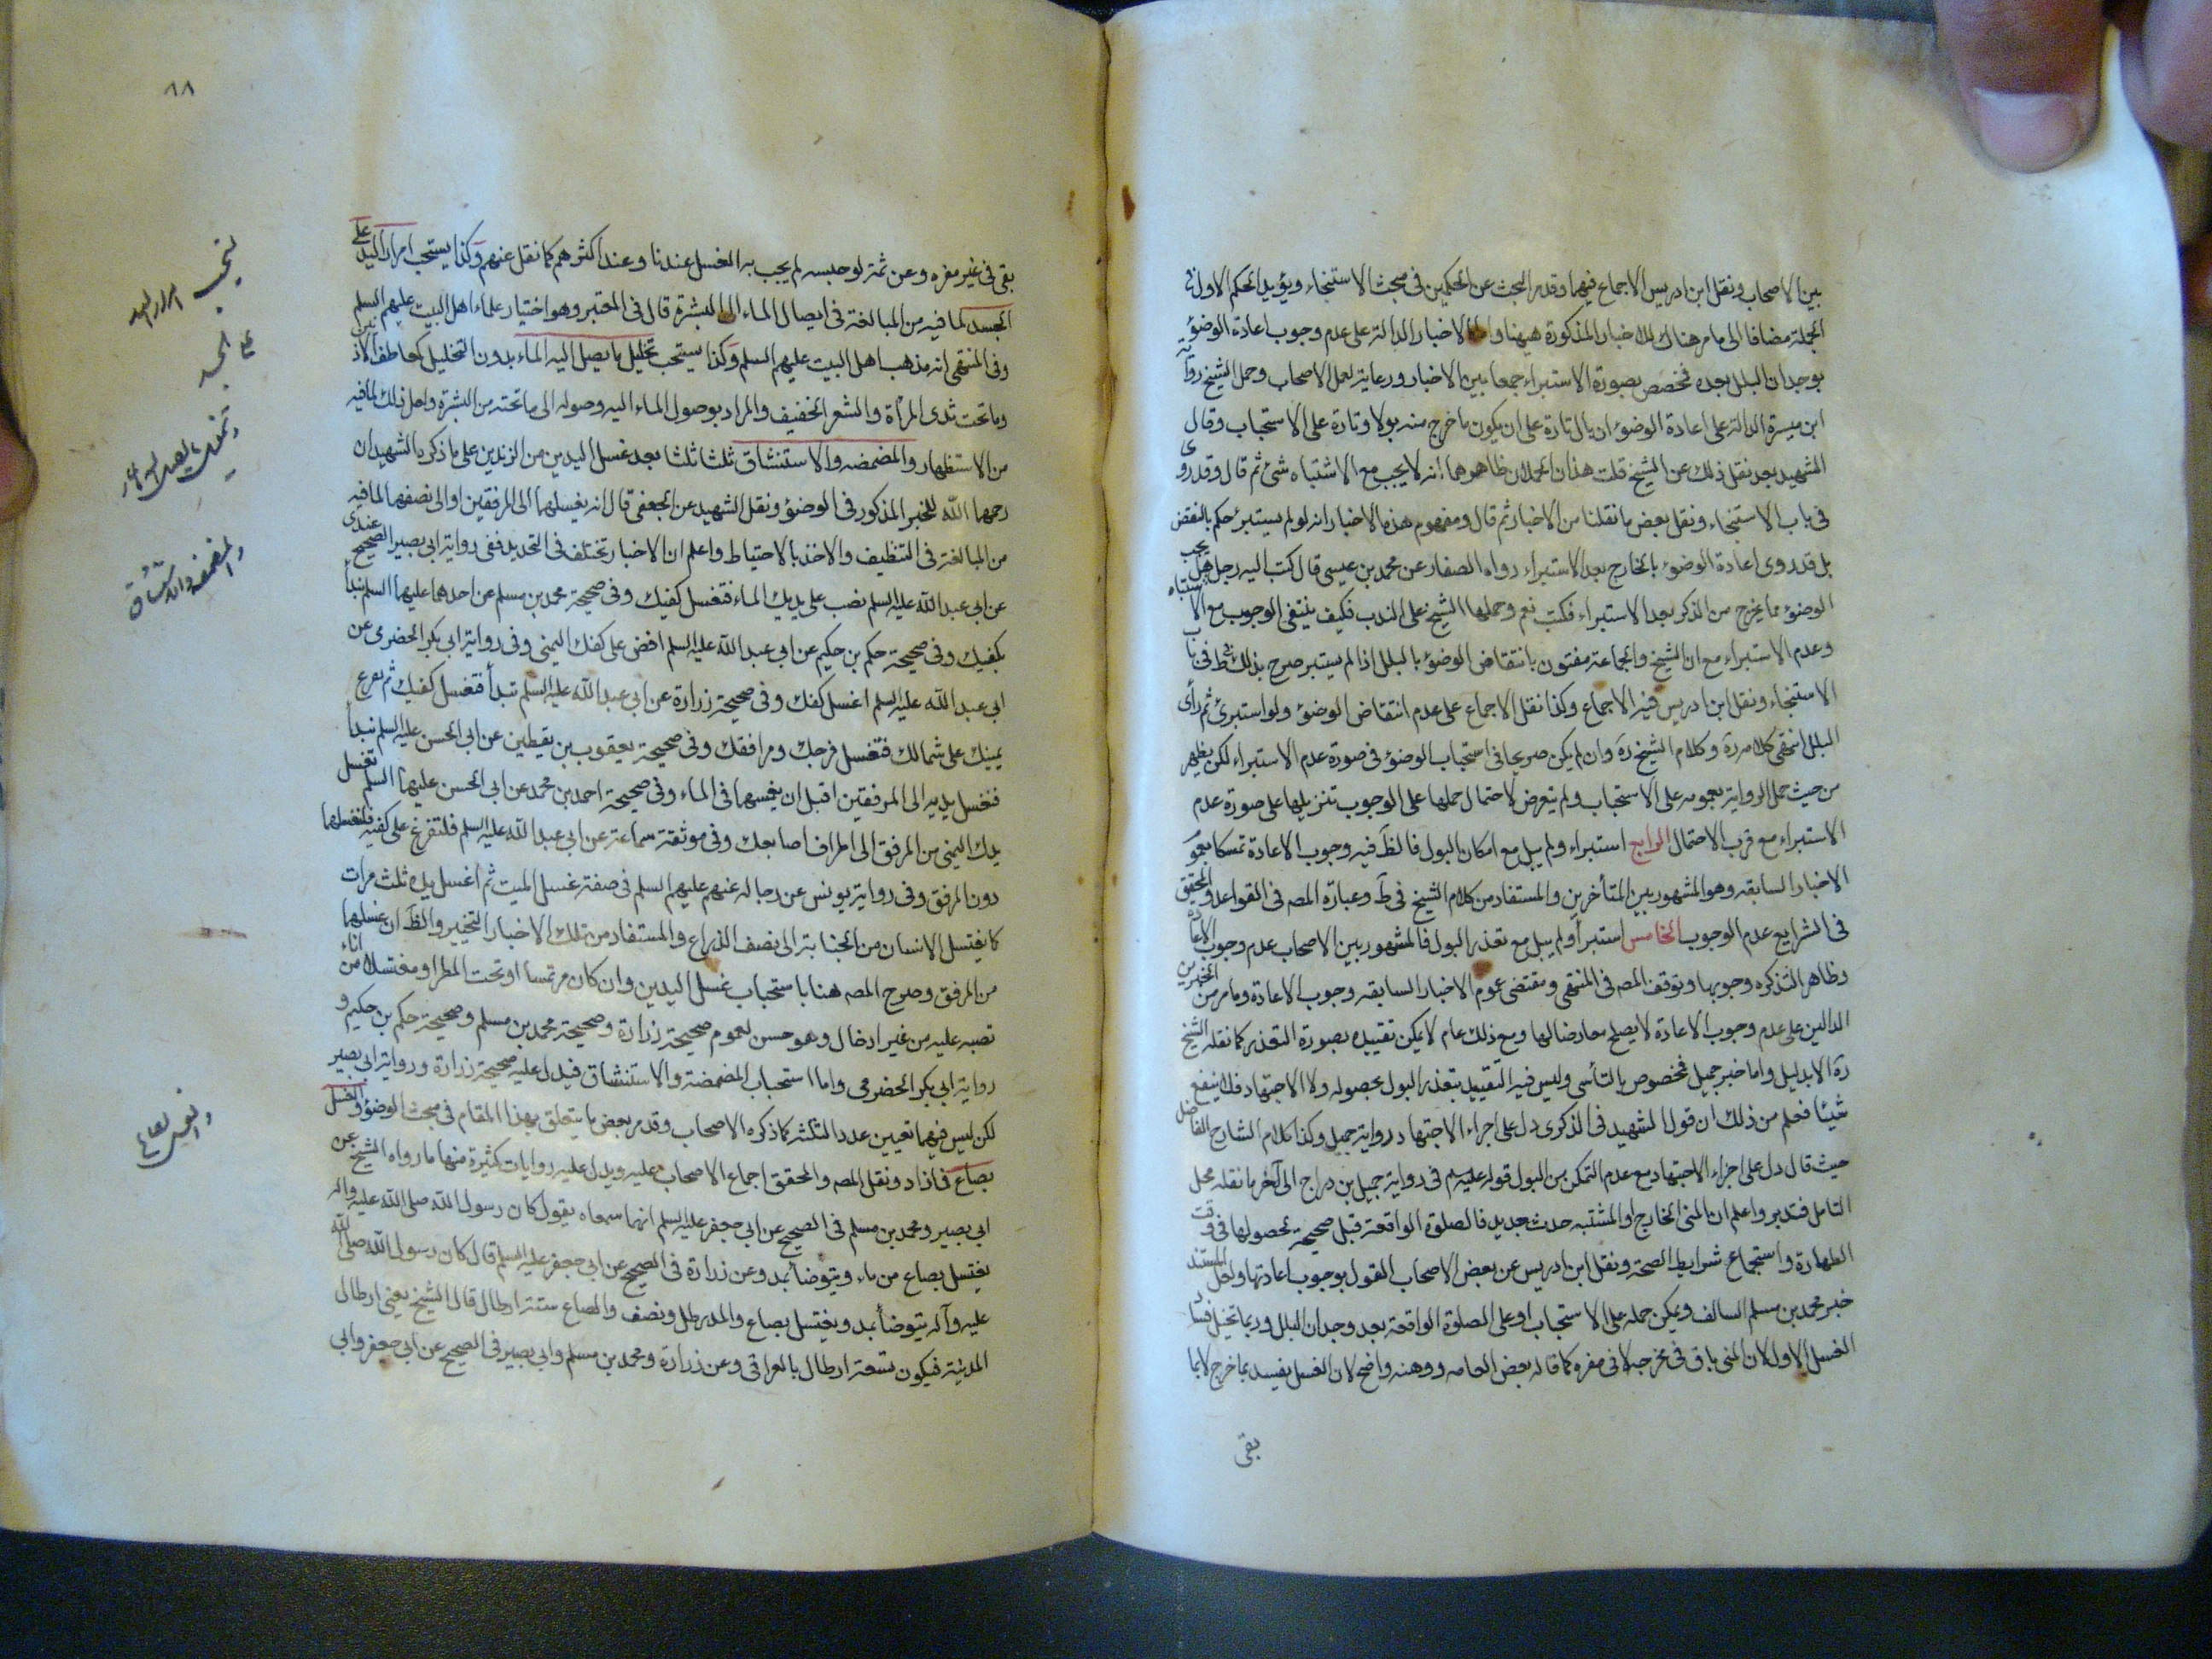 بين الاصحاب ونقل ابن ادريس الاجماع فيهما وقد مر البحث عن الحكمين فى مبحث الاستنجاء ويؤيد الحكم الاول فى
الجملة مضافا الى ما مر هناك الاخبار المذكورة هيهنا واما الاخبار الدالة على عدم وجوب اعادة الوضوء
بوجدان البلل بعده فمخصص بصورة الاستبراء جمعا بين الاخبار ورعاية لعمل الاصحاب وحمل الشيخ رواية
ابن ميسرة الدالة على اعادة الوضوء ان بال تارة على ان يكون ما خرج منه بولا وتارة على الاستحباب وقال
الشهيد بعد نقل ذلك عن الشيخ قلت هذان الحملان ظاهرهما انه لا يجب مع الاشتباه شئ ثم قال وقد روى
فى باب الاستنجاء ونقل بعض ما نقلنا من الاخبار ثم قال ومفهوم هذه الاخبار انه لو لم يستبرئ حكم بالنقض
بل قد روى اعادة الوضوء بالخارج بعد الاستبراء رواه الصفار عن محمد بن عيسى قال كتب اليه رجل هل يجب
الوضوء مما يخرج من الذكر بعد الاستبراء فكتب نعم وحملها الشيخ على الندب فكيف ينتفى الوجوب مع الاشتباه
وعدم الاستبراء مع ان الشيخ والجماعة مفتون بانتقاض الوضوء بالبلل اذا لم يستبر صرح بذلك فى ط فى باب
الاستنجاء ونقل ابن ادريس فيه الاجماع وكذا نقل الاجماع على عدم انتقاض الوضوء ولو استبرئ ثم رأى
البلل انتهى كلامه ره وكلام الشيخ ره وان لم يكن صريحا فى استحباب الوضوء فى صورة عدم الاستبراء لكن يظهر
من حيث حمل الرواية بعمومه على الاستحباب ولم يتعرض لاحتمال حملها على الوجوب تنزيلها على صورة عدم
الاستبراء مع قرب الاحتمال الرابع استبراء ولم يبل مع امكان البول فالظ فيه وجوب الاعادة تمسكا بعموم
الاخبار السابقه وهو المشهور بين المتأخرين والمستفاد من كلام الشيخ فى ط وعبارة المصه فى القواعد والمحقق
فى الشرايع عدم الوجوب الخامس استبرأ ولم يبل مع تعذر البول فالمشهور بين الاصحاب عدم وجوب الاعادة
وظاهر التذكره وجوبها وتوقف المصه فى المنتهى ومقتضى عموم الاخبار السابقه وجوب الاعادة وما مر من الخبرين
الدالين على عدم وجوب الاعادة لا يصلح معارضا لها ومع ذلك عام لا يمكن تقييده بصورة التعذر كما نقله الشيخ
ره الا بدليل واما خبر جميل فمخصوص بالناسى وليس فيه التقييد بتعذر البول بحصوله ولا الاجتهاد فلا ينفع
شيئا فعلم من ذلك ان قول الشهيد فى الذكرى دل على اجراء الاجتهاد رواية جميل وكذا كلام الشارح الفاضل
حيث قال دل على اجزاء الاجتهاد مع عدم التمكن من البول قوله عليه السلم فى رواية جميل بن دراج الى آخر ما نقله محل
التامل فتدبر واعلم ان المنى الخارج او المشتبه حدث جديد فالصلوة الواقعة قبل صحيحة لحصولها فى وقت
الطهارة واستجماع شرايط الصحة ونقل ابن ادريس عن بعض الاصحاب القول بوجوب اعادتها ولعل المستند
خبر محمد بن مسلم السالف ويمكن حمله على الاستحباب او على الصلوة الواقعة بعد وجدان البلل وربما تخيل فساد
الغسل الاول لان المنى باق فى مخرجه لا فى مقره كما قاله بعض العامه ووهنه واضح لان الغسل يفسد بما خرج لا بما
بقى
٨٨
بقى فى غير مقره وعن ثمة لو حبسه لم يجب به الغسل عندنا وعند اكثرهم كما نقل عنهم وكذا يستحب امرار اليد على
الجسد لما فيه من المبالغة فى ايصال الماء الى البشرة قال فى المعتبر وهو اختيار علماء اهل البيت عليهم السلم
وفى المنتهى انه مذهب اهل البيت عليهم السلم وكذا يستحب تخليل ما يصل اليه الماء بدون التخليل كمعاطف الاذنين
وما تحت ثدى المرأة والشعر الخفيف والمراد بوصول الماء اليه وصوله الى ما تحته من البشرة ولعل ذلك لما فيه
من الاستظهار والمضمضه والاستنشاق ثلثا ثلثا بعد غسل اليدين من الزندين على ما ذكره الشهيدان
رحمهما الله للخبر المذكور فى الوضوء ونقل الشهيد عن الجعفى قال انه يغسلهما الى المرفقين او الى نصفهما لما فيه
من المبالغة فى التنظيف والاخذ بالاحتياط واعلم ان الاخبار تختلف فى التحديد ففى رواية ابى بصير الصحيح عندى
عن ابى عبد الله عليه السلم تصب على يديك الماء فتغسل كفيك وفى صحيحة محمد بن مسلم عن احدهما عليهما السلم تبدأ
بكفيك وفى صحيحة حكم بن حكيم عن ابى عبد الله عليه السلم افض على كفك اليمنى وفى رواية ابى بكر الحضرمى عن
ابى عبد الله عليه السلم اغسل كفك وفى صحيحة زرارة عن ابى عبد الله عليه السلم تبدأ فتغسل كفيك ثم تفرغ
بيمينك على شمالك فتغسل فرجك ومرافقك وفى صحيحة يعقوب بن يقطين عن ابى الحسن عليه السلم تبدأ
فتغسل يديه الى المرفقين قبل ان يغمسهما فى الماء وفى صحيحة احمد بن محمد عن ابى الحسن عليهما السلم تغسل
يدك اليمنى من المرفق الى اطراف اصابعك وفى موثقة سماعة عن ابى عبد الله عليه السلم فلتفرغ على كفيه فلتغسلهما
دون المرفق وفى رواية يونس عن رجاله عنهم عليهم السلم فى صفة غسل الميت ثم اغسل يده ثلث مرات
كما يغتسل الانسان من الجنابة الى نصف الذراع والمستفاد من تلك الاخبار التخيير والظ ان غسلهما
من المرفق وصرح المصه هنا باستحباب غسل اليدين وان كان مرتمسا او تحت المطر او مغتسلا من اناء
تصبه عليه من غير ادخال وهو حسن لعموم صحيحة زرارة وصحيحة محمد بن مسلم وصحيحة حكم بن حكيم و
رواية ابى بكر الحضرمى واما استحباب المضمضة والاستنشاق فيدل عليه صحيحة زرارة ورواية ابى بصير
لكن ليس فيهما تعيين عدد الثلث كما ذكره الاصحاب وقد مر بعض ما يتعلق بهذا المقام فى مبحث الوضوء والغسل
بصاع فازاد ونقل المصه والمحقق اجماع الاصحاب عليه ويدل عليه روايات كثيرة منها ما رواه الشيخ عن
ابى بصير ومحمد بن مسلم فى الصحيح عن ابى جعفر عليه السلم انهما سمعاه يقول كان رسول الله صلى الله عليه واله
يغتسل بصاع من ماء ويتوضأ بمد وعن زرارة فى الصحيح عن ابى جعفر عليه السلم قال كان رسول الله صلى الله
عليه وآله يتوضأ بمد ويغتسل بصاع والمد رطل ونصف والصاع ستة ارطال قال الشيخ يعنى ارطال
المدينة فيكون تسعة ارطال بالعراقى وعن زرارة ومحمد بن مسلم وابى بصير فى الصحيح عن ابى جعفر وابى
يستحب امرار اليد
على الجسد
والمضمضه والاستنشاق
والغسل بصاع